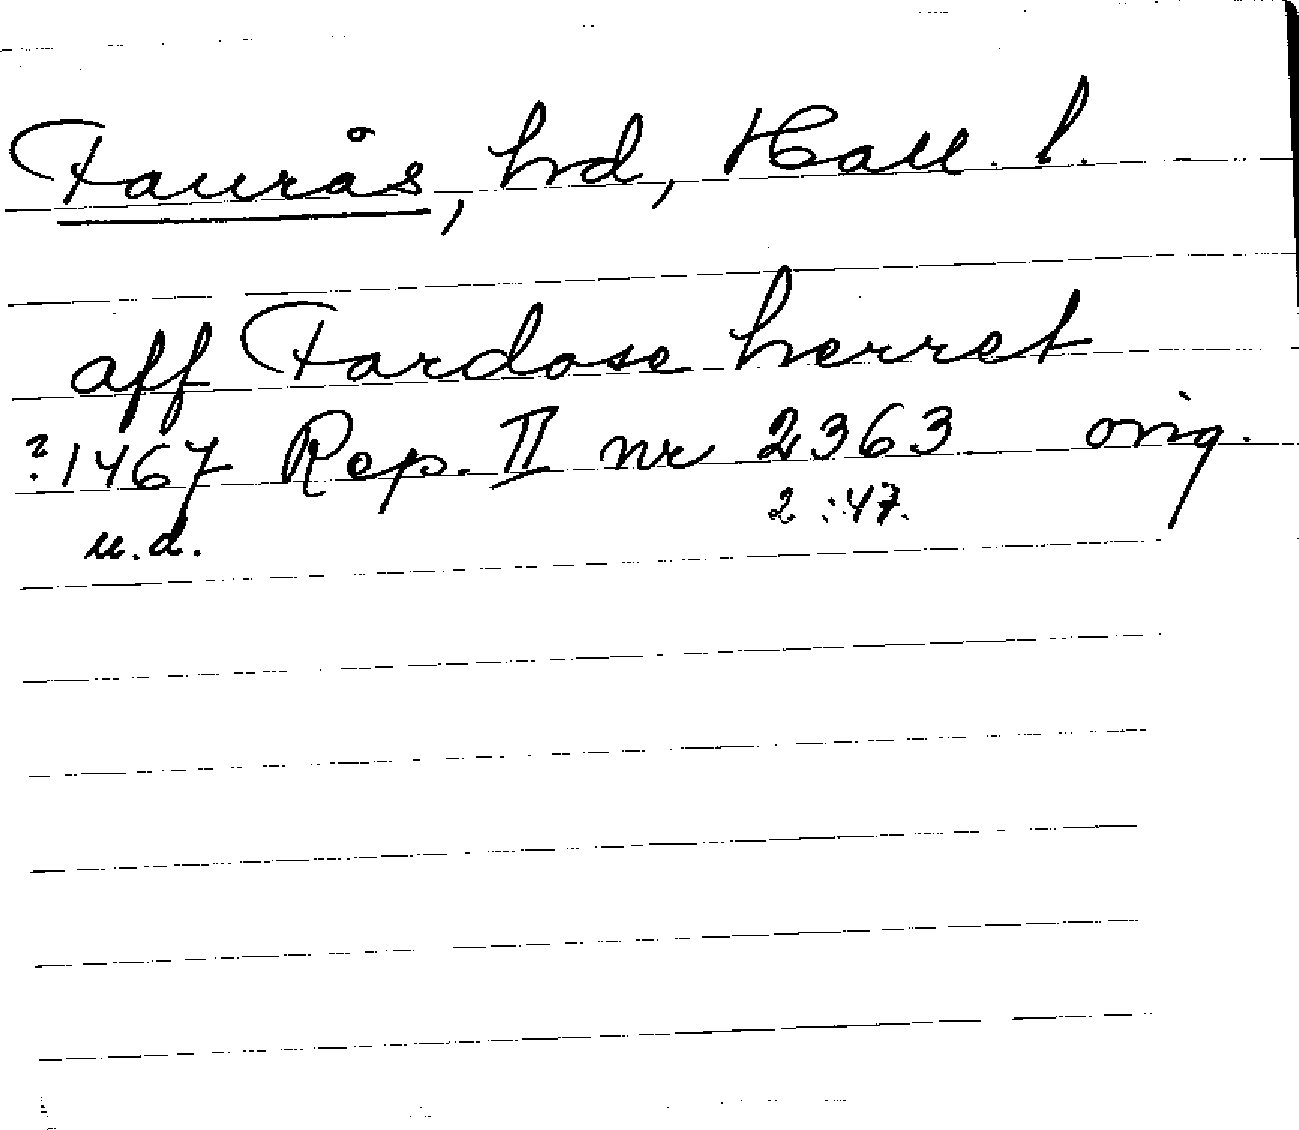 Faurås, hd, Hall. l.
aff Fardose herret
? 1467 Rep. II nr 2363 orig.
u.d. 2:47.